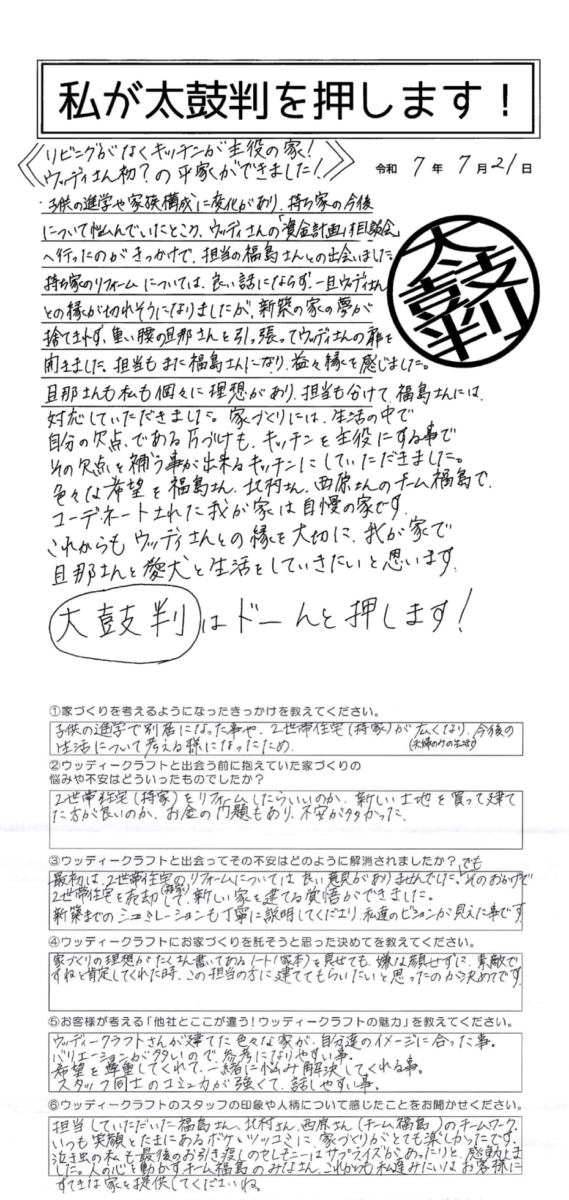 私が太鼓判を押します！
《リビングがなくキッチンが主役の家！
ウッディさん初？の平家ができました！》
令和 7 年 7 月 21 日
太鼓判
・子供の進学や家族構成に変化があり、持ち家の今後
について悩んでいたところ、ウッディさんの「資金計画」相談会
へ行ったのがきっかけで、担当の福島さんとの出会いました
持ち家のリフォームについては、良い話にならず、一旦ウッディさん
との縁が切れそうになりましたが、新築の家の夢が
捨てきれず、重い腰の旦那さんと引っ張ってウッディさんの扉を
開きました。担当もまた福島さんになり、益々縁を感じました。
旦那さんも私も個々に理想があり、担当も分けて、福島さんには、
対応していただきました。家づくりには、生活の中で
自分の欠点、である片づけも、キッチンを主役にする事で
その欠点を補う事が出来るキッチンにしていただきました。
色々な希望を福島さん、北村さん、西原さんのチーム福島で、
コーデネートされた我が家は自慢の家です。
これからもウッディさんとの縁を大切に、我が家で
旦那さんと愛犬と生活をしていきたいと思います。
太鼓判はドーンと押します！
①家づくりを考えるようになったきっかけを教えてください。
子供の進学で別居になった事や、2世帯住宅（持家）が広くなり、今後の
（夫婦のみの生活）
生活について考える様になったため、
②ウッディークラフトと出会う前に抱えていた家づくりの
悩みや不安はどういったものでしたか？
2世帯住宅（持家）をリフォームしたらいいのか、新しい土地を買って建て
た方が良いのか、お金の問題もあり、不安が多かった。
③ウッディークラフトと出会ってその不安はどのように解消されましたか？
最初は、2世帯住宅のリフォームについては良い意見がありませんでした、でもそのおかげで
2世帯住宅を売却して、新しい家を建てる覚悟ができました。
新築までのシュミレーションも丁寧に説明してくださり、私達のビジョンが見えた事です
④ウッディークラフトにお家づくりを託そうと思った決めてを教えてください。
家づくりの理想がたくさん書いてあるノート1冊を見せても、嫌な顔せずに、素敵で
すねと肯定してくれた時、この担当の方に建ててもらいたいと思ったのが決めてです
⑤お客様が考える「他社とここが違う！ウッディークラフトの魅力」を教えてください。
ウッディークラフトさんが建てた色々な家が、自分達のイメージに合った事。
バリエーションが多いので、参考になりやすい事。
希望を尊重してくれて、一緒に悩み解決してくれる事。
スタッフ同士のコミュ力が強くて、話しやすい事。
⑥ウッディークラフトのスタッフの印象や人柄について感じたことをお聞かせください。
担当していただいた福島さん、北村さん、西原さん（チーム福島）のチームワーク、
いつも笑顔とたまにあるボケツッコミに、家づくりがとても楽しかったです。
泣き虫の私も最後のお引き渡しのセレモニーはサプライズがあったりと、感動しま
した。人の心を動かすチーム福島のみなさん、これからも私達みたいなお客様に
すてきな家を提供してくださいね。